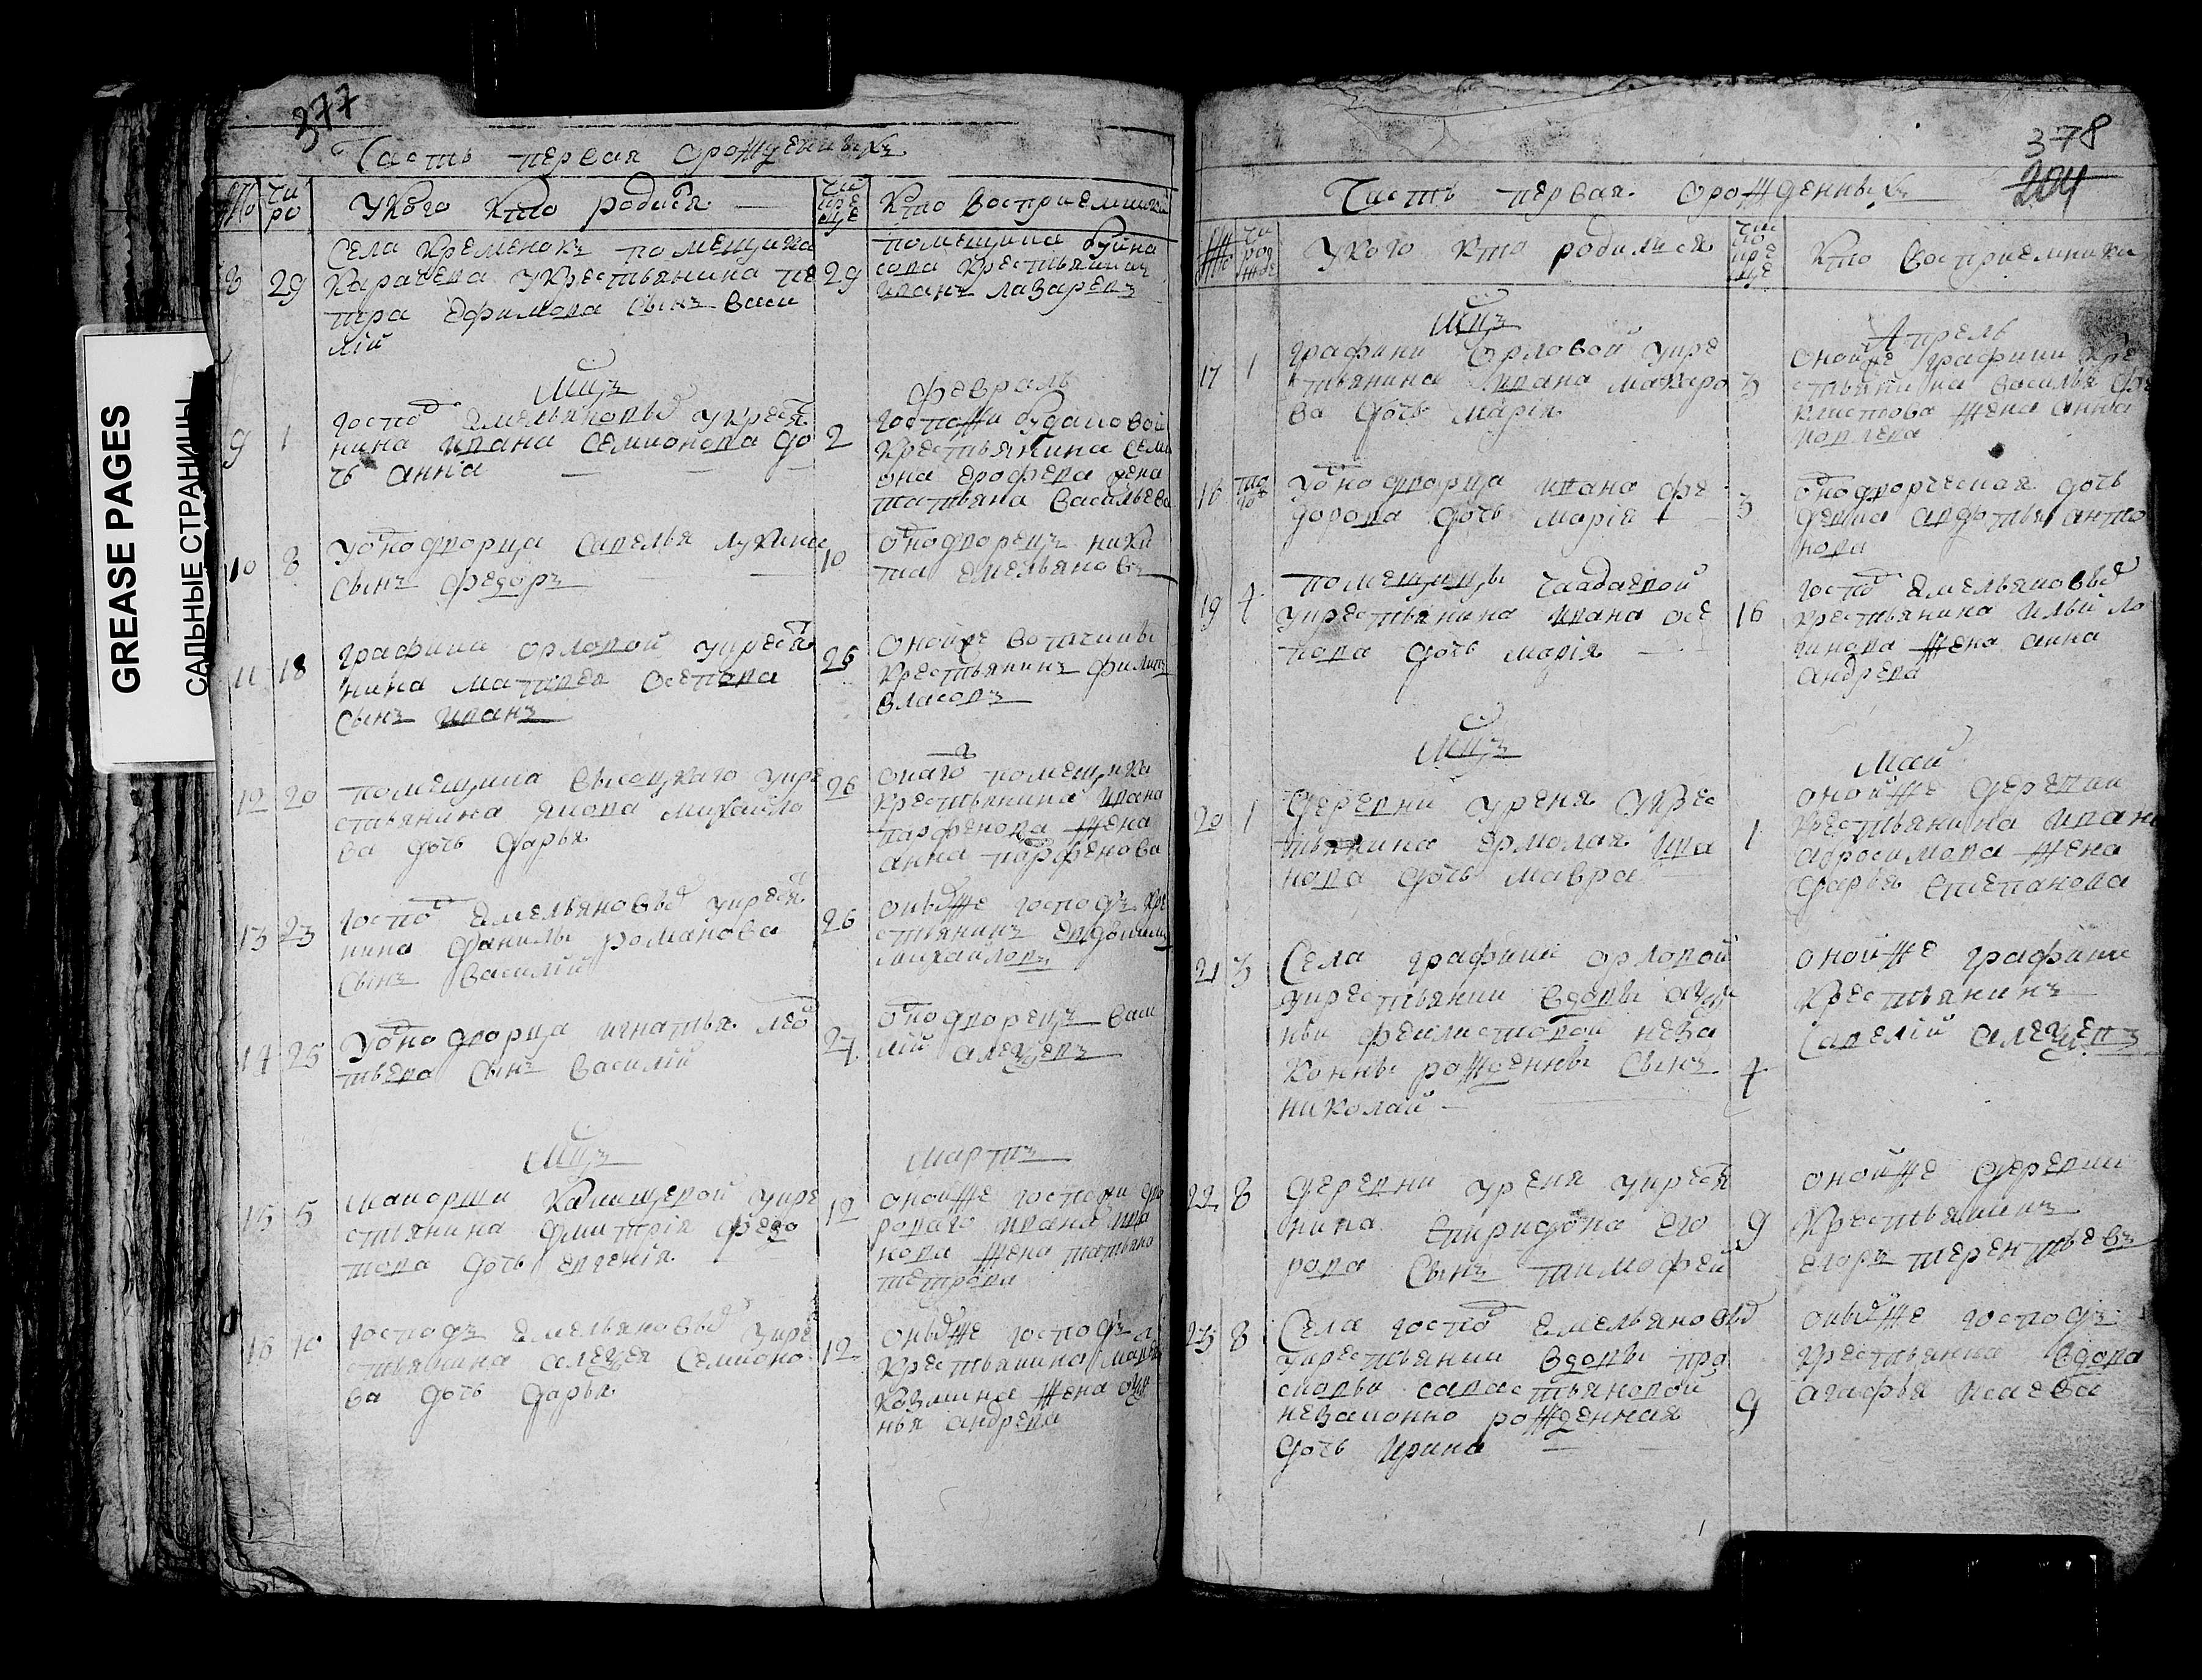 GREASE PAGES
САЛЬНЫЕ СТРАНИЦЫ
377
Часть первая орожденныхъ
чи
ро
Укого кто родился
Кто восприемники
8
29
Села Кременокъ помещика
Карачева укрестьянина пе
тра Ефимова сынъ васи
лій
29
помещика
сова крестьянинъ
иванъ лазаревъ
Мцъ
февраль
9
1
госпд Емельяновых укрестя
нина ивана семионова до
чь анна
2
госпожи будаловой
крестьянина семи
она ерофеева жена
татьяна васильева
10
8
Уоднодворца савелья лукина
сынъ федоръ
10
однодворецъ ники
та емельяновъ
11
18
графини орловой укрестя
нина матвея осепова
сынъ иванъ
26
оной же вотчины
крестьянинъ филипъ
власовъ
12
20
помещика высоцкаго укре
стьянина якова михаило
ва дочь дарья
26
онаго помещика
крестьянина ивана
парфенова жена
анна парфенова
13
23
госпд Емельяновых укрестя
нина данилы романова
сынъ василій
26
оных же господъ кре
стьянинъ евдокимъ
михайловъ
14
25
Уоднодворца игнатья лео
тьева сынъ василій
27
однодворецъ васи
лій алексеевъ
Мцъ
мартъ
15
5
маиорши укре
стьянина дмитрія федо
това дочь евгенія
12
оной же госпожи дво
роваго ивана ива
нова жена татьяна
петрова
16
10
господъ Емельяновых укре
стьянина алексея семионо
ва дочь дарья
12
оных же господъ
крестьянина
козмина жена
нья андреева
378
204
Часть первая орожденныхъ
чи
род
Укого кто родился
Кто восприемники
Мцъ
Апрель
17
1
графини Орловой укре
стьянина ивана макаро
ва дочь марія
3
оной же графини кре
стьянина василья фе
клистова жена анна
18
Уоднодворца ивана фе
дорова дочь марія
3
однодворческая дочь
девка авдотья анто
нова
19
7
помещицы чаадаевой
укрестьянина ивана осе
пова дочь марія
16
госпд Емельяновых
крестьянина ильи ло
гинова жена анна
андреева
Мцъ
май
20
1
деревни уреня укрес
тьянина ермолая ива
нова дочь мавра
1
оной же деревни
крестьянина ивана
абросимова жена
дарья степанова
21
3
Села графини орловой
укрестьянки вдовы
феклистовой неза
конны рожденны сынъ
николай
7
оной же графини
крестьянинъ
савелій алексеевъ
22
8
деревни уреня укрестя
нина спиридона его
рова сынъ тимофей
9
оной же деревни
крестьянинъ
егоръ терентьевъ
23
8
Села госпд Емельяновых
укрестьянки вдовы пра
сковьи савастьяновой
незаконно рожденная
дочь ирина
9
оных же господъ
крестьянка вдова
агафья исаева